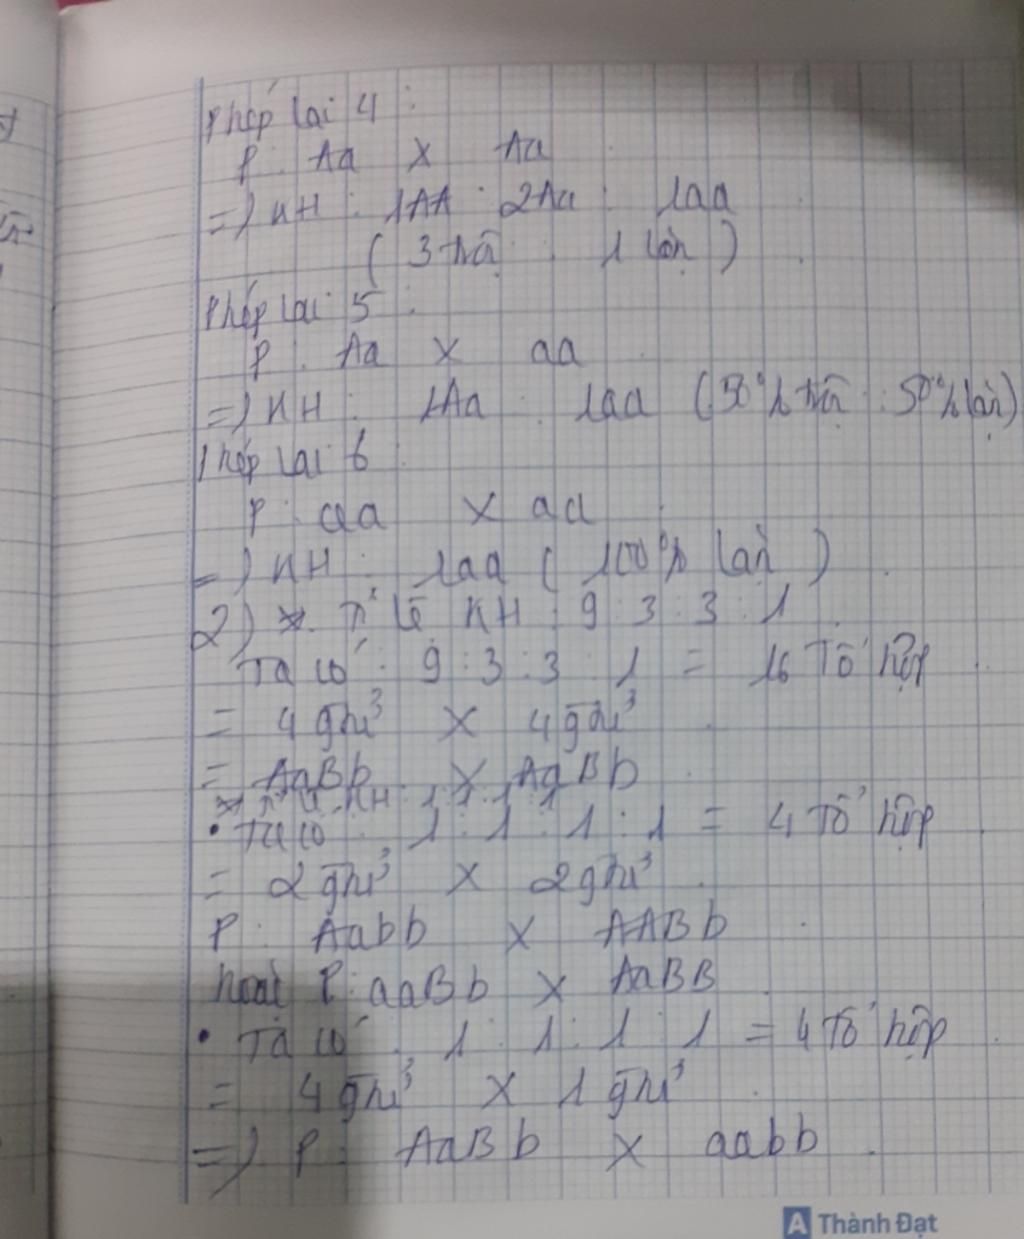 Phép lai 4 :
P : Aa x Aa
=) KH : 1AA : 2Aa : 1aa
( 3 trội : 1 lặn )
Phép lai 5 :
P : Aa x aa
=) KH : 1Aa : 1aa (50% trội : 50% lặn)
Phép lai 6
P : aa x aa
=) KH : 1aa ( 100% lặn )
2) * Tỉ lệ KH : 9 : 3 : 3 : 1
Ta có : 9 : 3 : 3 : 1 = 16 Tổ hợp
= 4 gtử x 4 gtử
= AaBb x AaBb
* Tỉ lệ KH : 1 : 1 : 1 : 1
• Ta có : 1 : 1 : 1 : 1 = 4 Tổ hợp
= 2 gtử x 2 gtử
P : Aabb x AABb
hoặc P : aaBb x AaBB
• Ta có : 1 : 1 : 1 : 1 = 4 Tổ hợp
= 4 gtử x 1 gtử
=) P : AaBb x aabb
A Thành Đạt